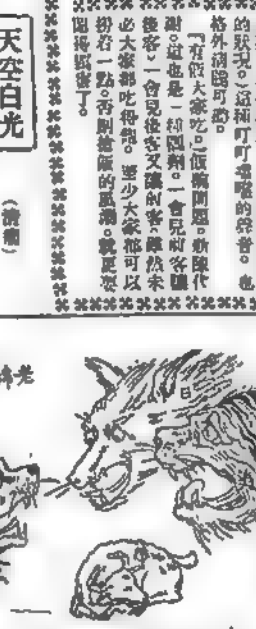 的狀況。）這種叮叮噹噹的聲音。也
格外清脆可聽。
「有飯大家吃。」飯碗問題。新陳代
謝。這也是一種調劑。一會兒前客讓
後客。一會兒後客又讓前客。雖然未
必大家都吃得飽。至少大家都可以
分着一點。否則搶飯的風潮。就更要
鬧得厲害了。
天空白光
老
日